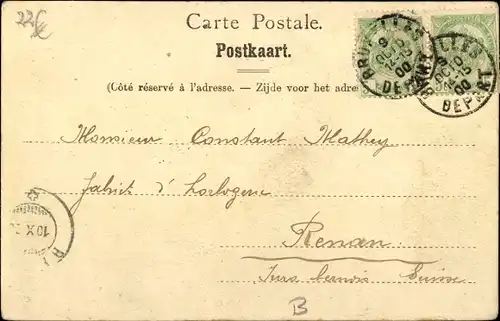 22€
Carte Postale.
Postkaart.
(Côté réservé à l'adresse. — Zijde voor het adre
BRUXELLES
9
OCTO
00
DEPART
BRUXELLES
9
OCTO
00
DEPART
Monsieur Constant Mathey
Fabrict d'horlogerie
Renan
Jura bernois Suisse
10 X
B